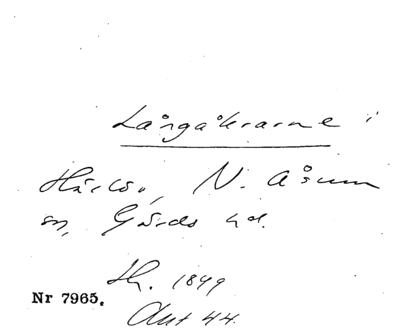 Långåkrarne i
Härlöv, N. Åsum
sn, Gärds hd.
Sk. 1849
Nr 7965.
Akt 44.